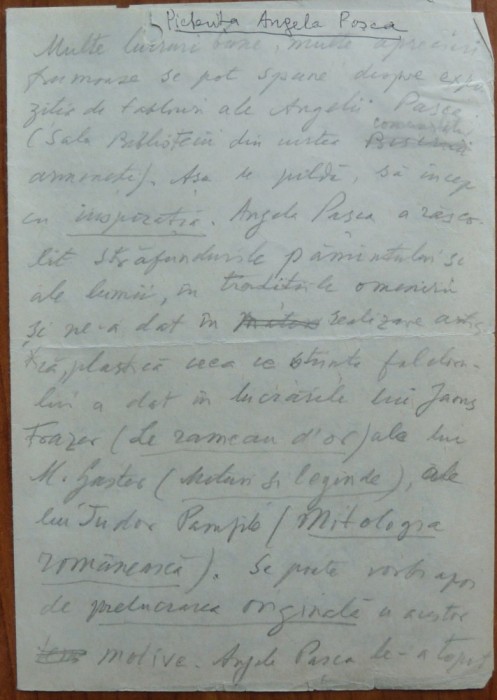 Pictorița Angela Pașca
Multe lucruri bune, multe aprecieri
frumoase se pot spune despre expo
ziția de tablouri ale Angelii Pașca
(Sala Bibliotecii din curtea
armenești). Așa de pildă, să încep
cu inspirația. Angela Pașca a răsco-
lit străfundurile pămîntului și
ale lumii, în tradițiile omenirii
și ne-a dat în realizare artis
tică, plastică ceea ce știința folclor-
lui a dat în lucrările lui James
Frazer (Le rameau d'or) ale lui
M. Gaster (Moturi și legende), ale
lui Tudor Pamfile (Mitologia
românească). Se poate vorbi apoi
de prelucrarea originală a acestor
motive. Angela Pașca le-a topit